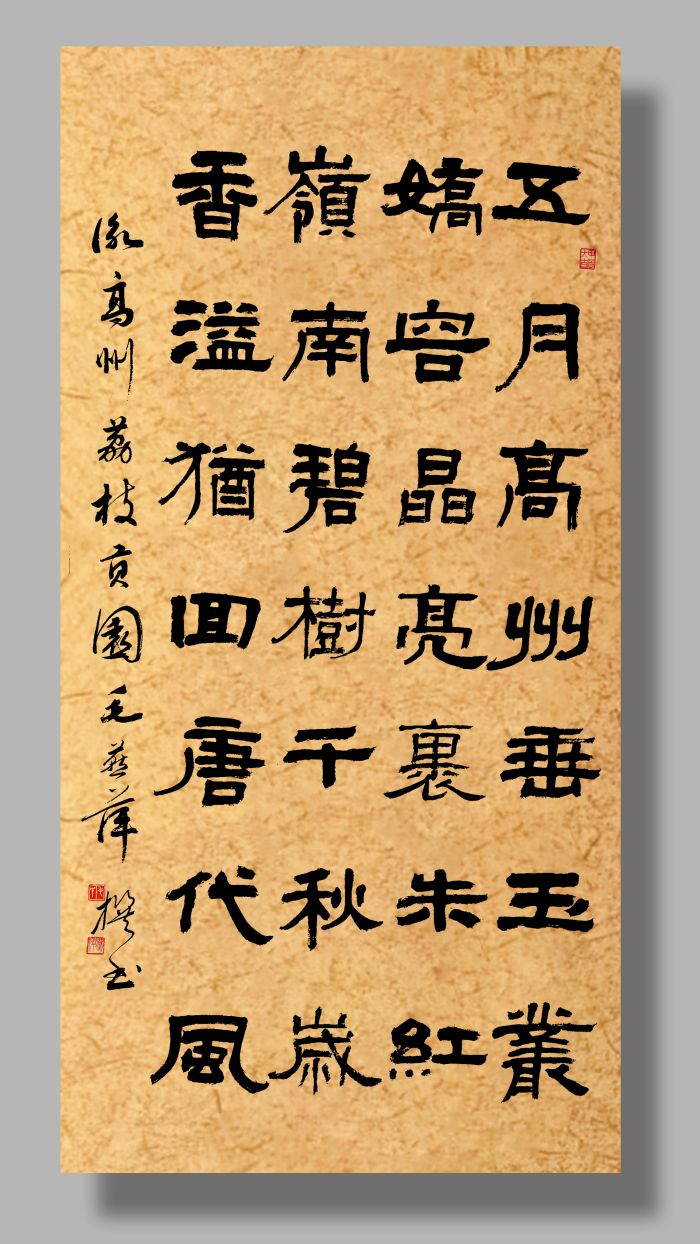 五月高州垂玉叢
嬌容晶亮裹朱紅
嶺南碧樹千秋歲
香溢猶回唐代風
詠高州荔枝貢園毛燕萍撰书